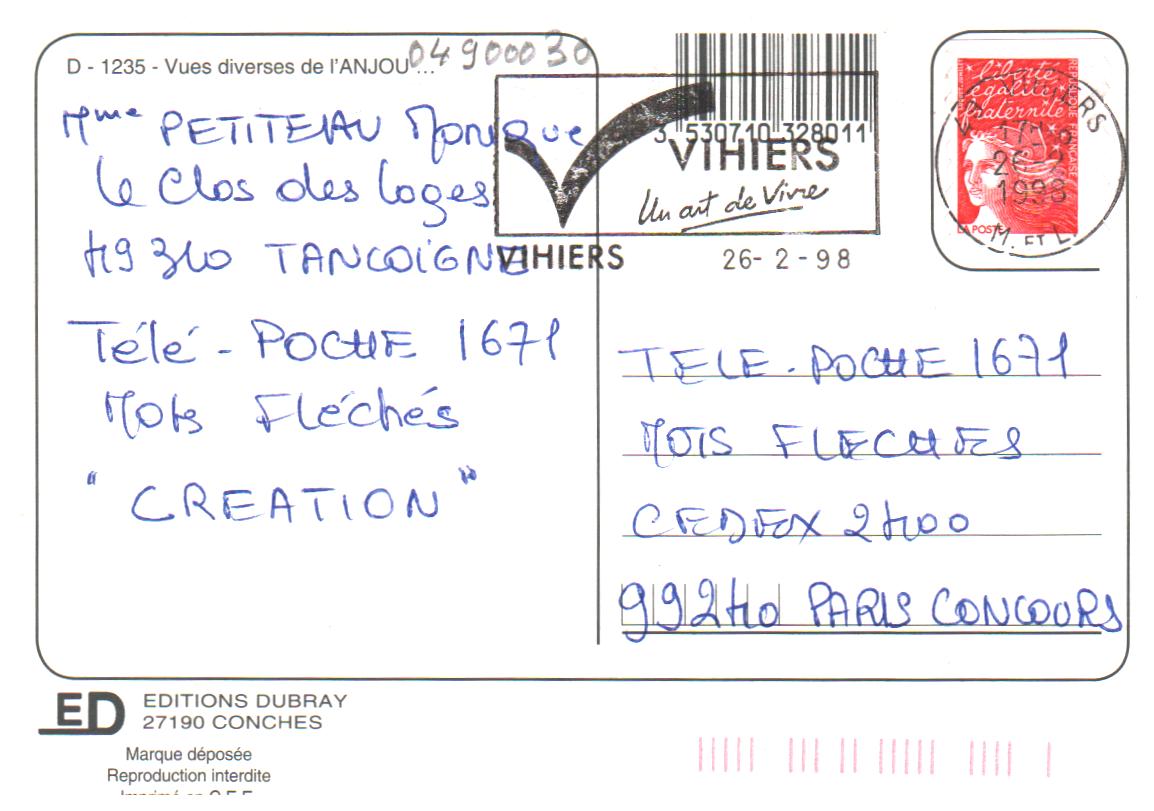 D - 1235 - Vues diverses de l'ANJOU ...
04900030
Mme PETITEAU Monique
le Clos des Loges
49310 TANCOIGNE
Télé-POCHE 1671
Mots Fléchés
"CREATION"
3 530710 328011
VIHIERS
Un art de Vivre
VIHIERS
26- 2 -98
liberté
égalité
fraternité
RÉPUBLIQUE FRANÇAISE
LA POSTE
VIHIERS
26-2
1998
M. ET L.
TELE-POCHE 1671
MOTS FLECHES
CEDEX 2400
99240 PARIS CONCOURS
ED
EDITIONS DUBRAY
27190 CONCHES
Marque déposée
Reproduction interdite